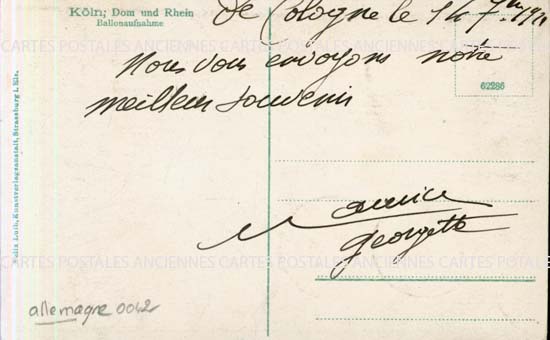 Köln; Dom und Rhein
Ballonaufnahme
de Cologne le 14 7
Nous vous envoyons notre
meilleur souvenir
62286
Maurice
Georgette
Felix Luib, Kunstverlagsanstalt, Strassburg i. Els.
CARTES POSTALES ANCIENNES CARTES POSTALES ANCIENNES CARTES
CARTES POSTALES ANCIENNES CARTES POSTALES ANCIENNES
allemagne 0042